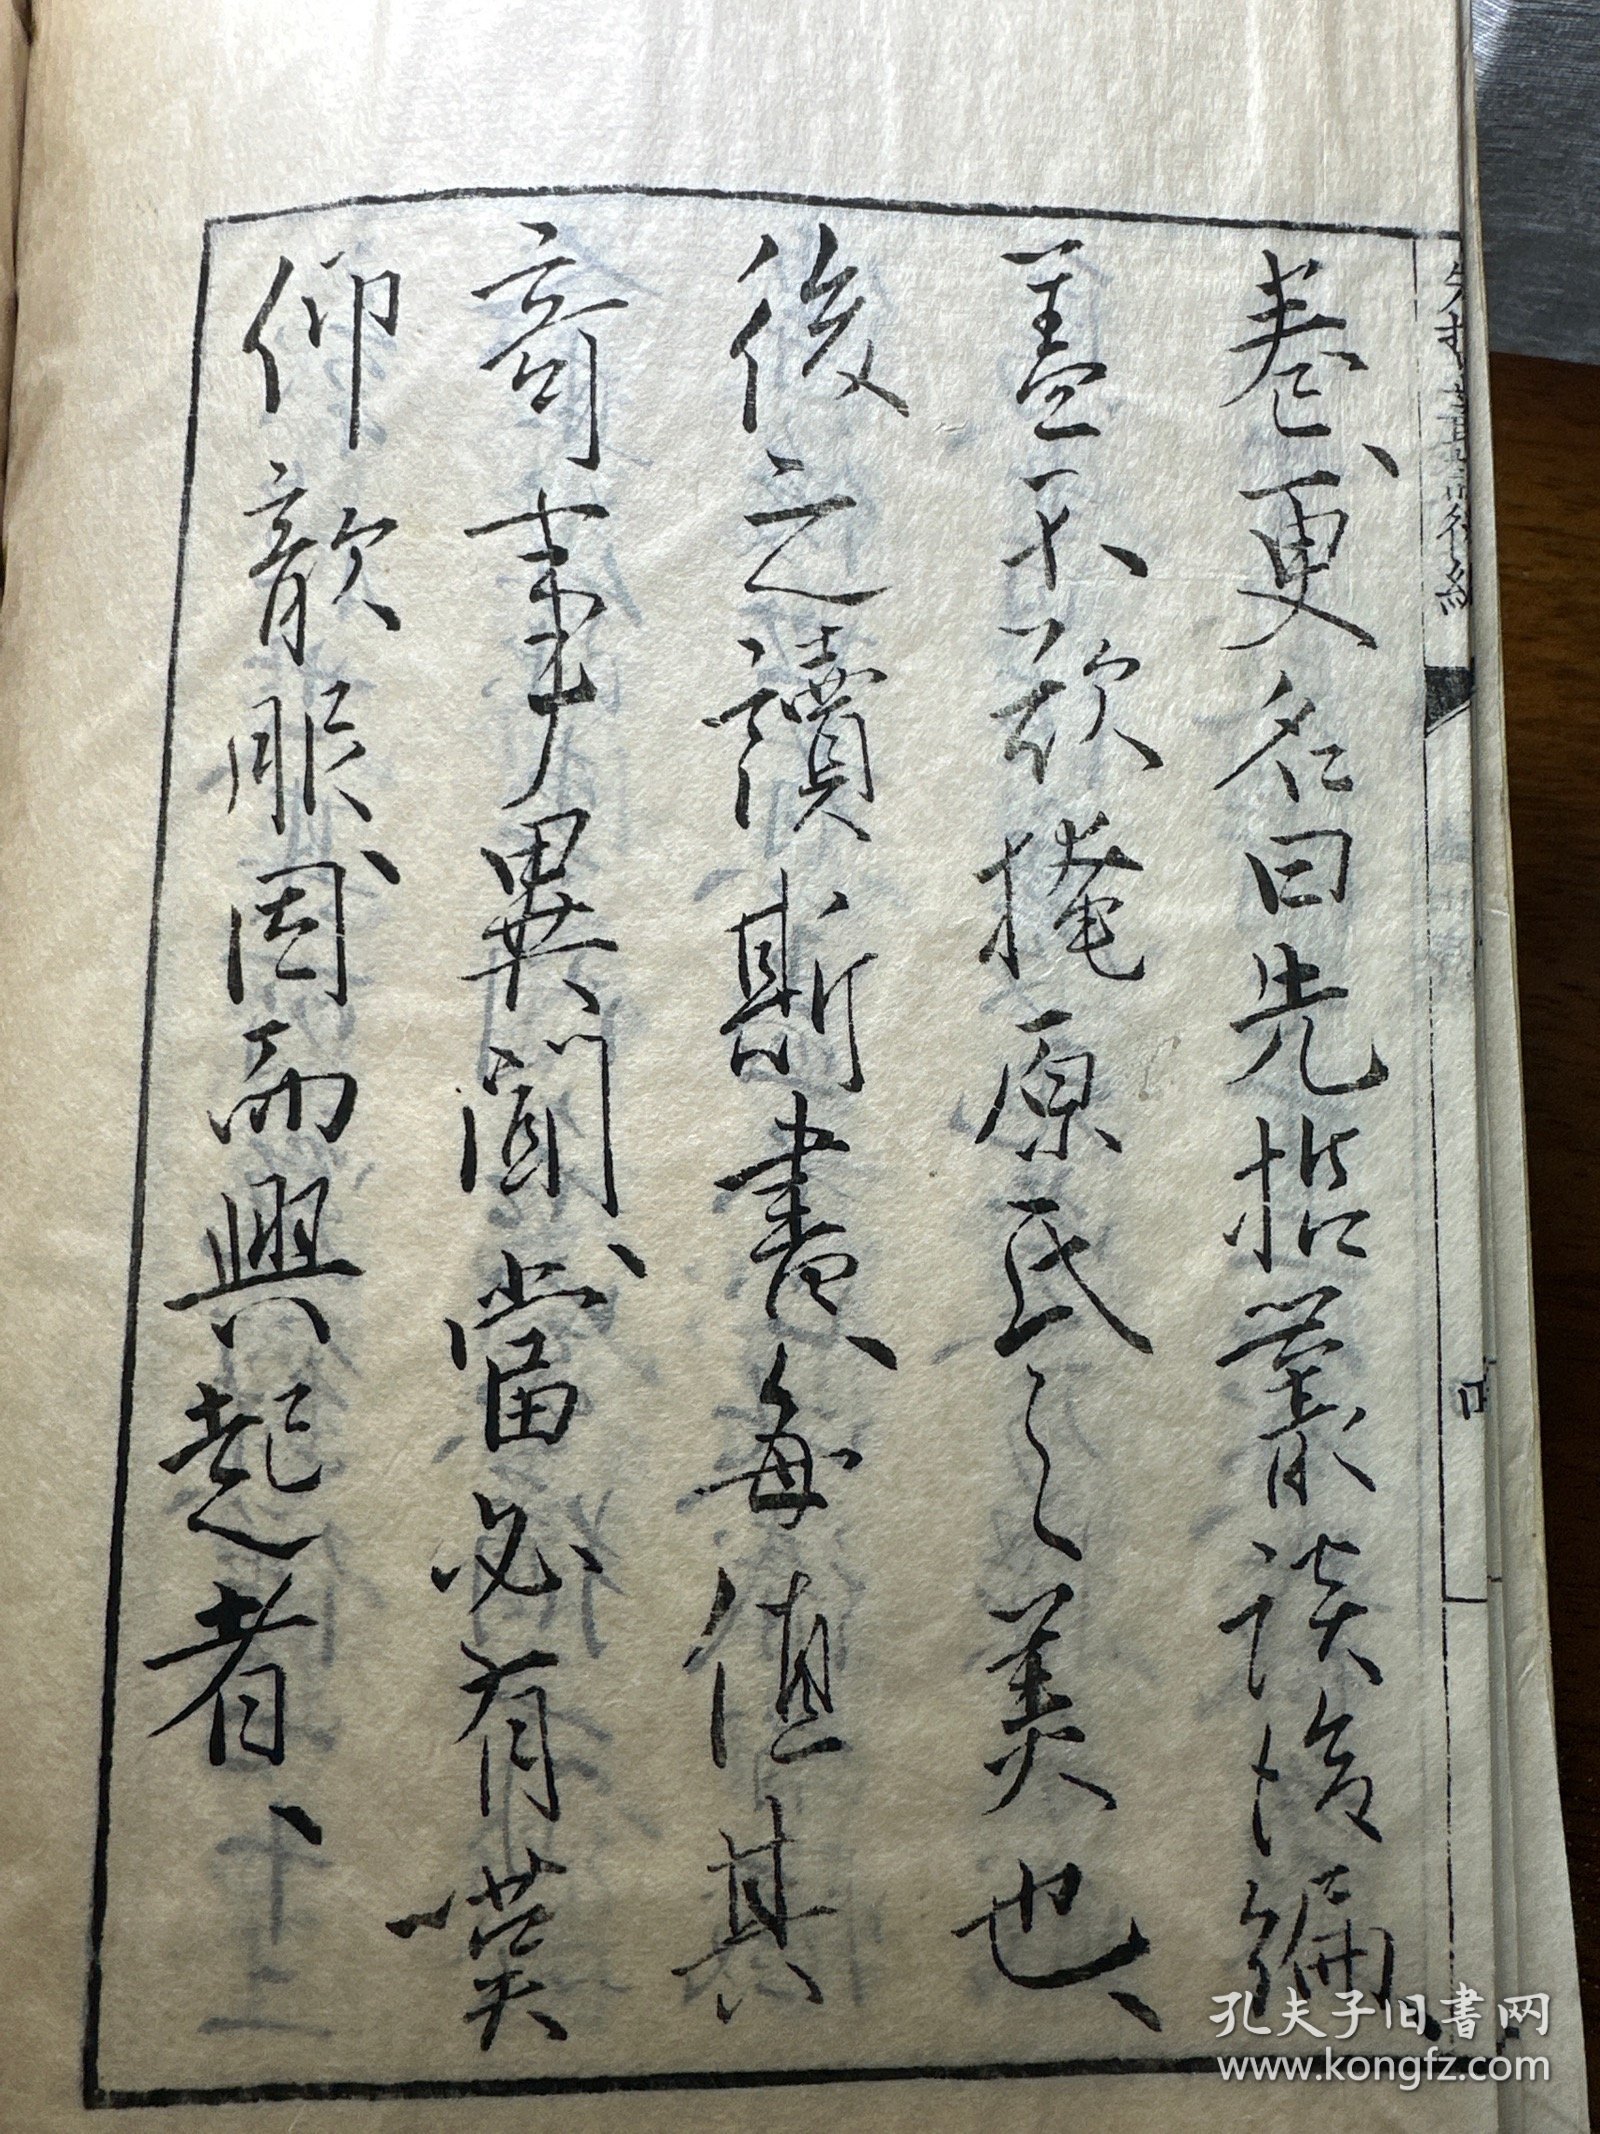 卷、更名曰先哲叢談後編、
蓋不欲掩原氏之美也、
後之讀斯書、每值其
奇事異聞、當必有嘆
仰歆服、因而興起者、
孔夫子旧书网
www.kongfz.com